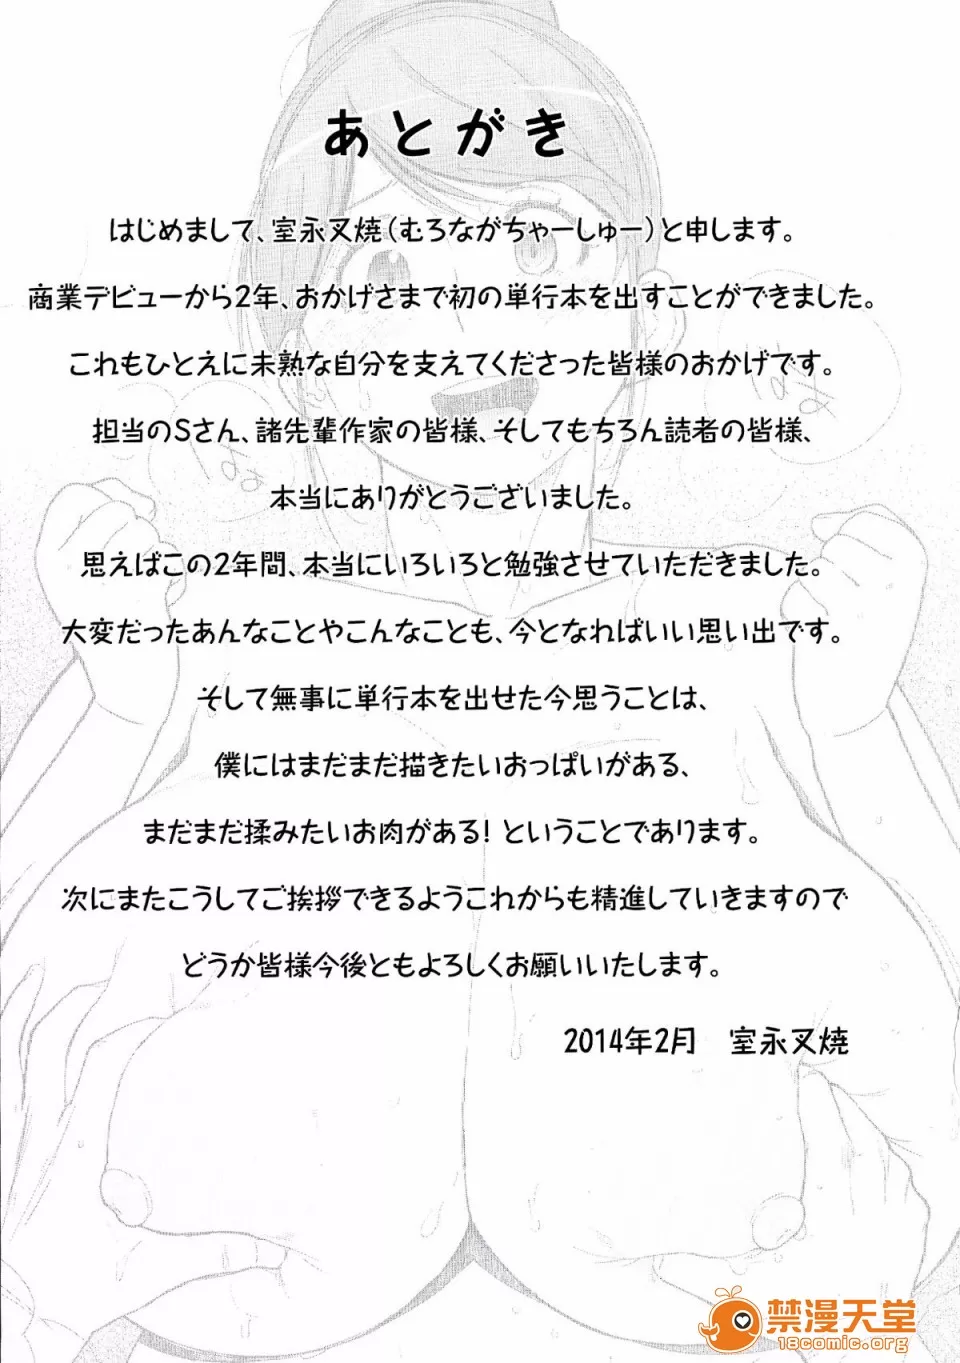 あとがき
はじめまして、室永叉焼（むろながちゃーしゅー）と申します。
商業デビューから2年、おかげさまで初の単行本を出すことができました。
これもひとえに未熟な自分を支えてくださった皆様のおかげです。
担当のSさん、諸先輩作家の皆様、そしてもちろん読者の皆様、
本当にありがとうございました。
思えばこの2年間、本当にいろいろと勉強させていただきました。
大変だったあんなことやこんなことも、今となればいい思い出です。
そして無事に単行本を出せた今思うことは、
僕にはまだまだ描きたいおっぱいがある、
まだまだ揉みたいお肉がある！ということであります。
次にまたこうしてご挨拶できるようこれからも精進していきますので
どうか皆様今後ともよろしくお願いいたします。
2014年2月　室永叉焼
禁漫天堂
18comic.org